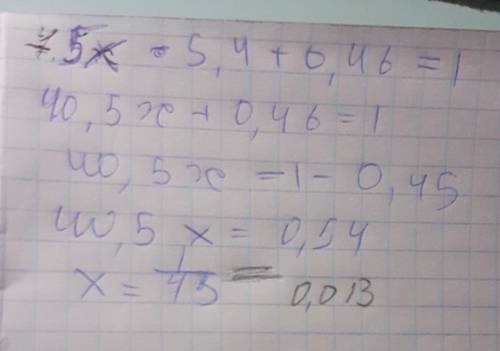 7.5x · 5,4 + 0,46 = 1
40,5x + 0,46 = 1
40,5x = 1 - 0,45
40,5x = 0,54
x = 1/75 = 0,013